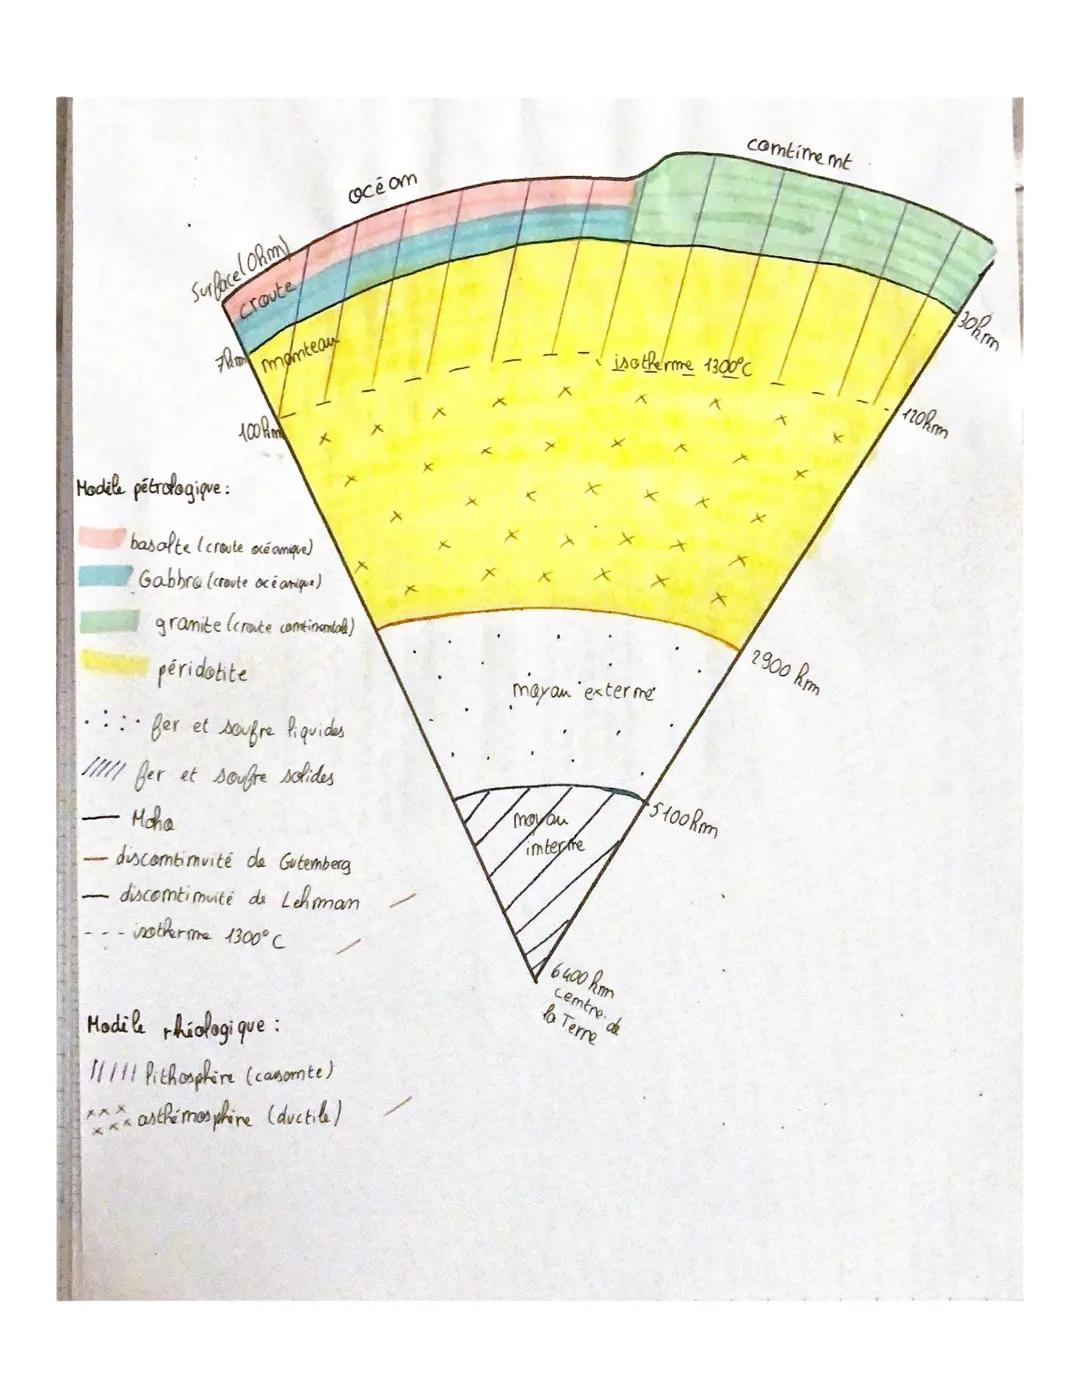 océan
continent
Surface (0km)
croute
7km
manteau
30km
isotherme 1300°C
100km
120km
Modèle pétrologique :
basalte (croute océanique)
Gabbro (croute océanique)
granite (croute continentale)
péridotite
fer et soufre liquides
fer et soufre solides
Moho
discontinuité de Gutemberg
discontinuité de Lehman
isotherme 1300°C
2900 km
noyau externe
5100km
noyau
interne
6400 km
centre de
la Terre
Modèle rhéologique :
lithosphère (cassante)
asthénosphère (ductile)